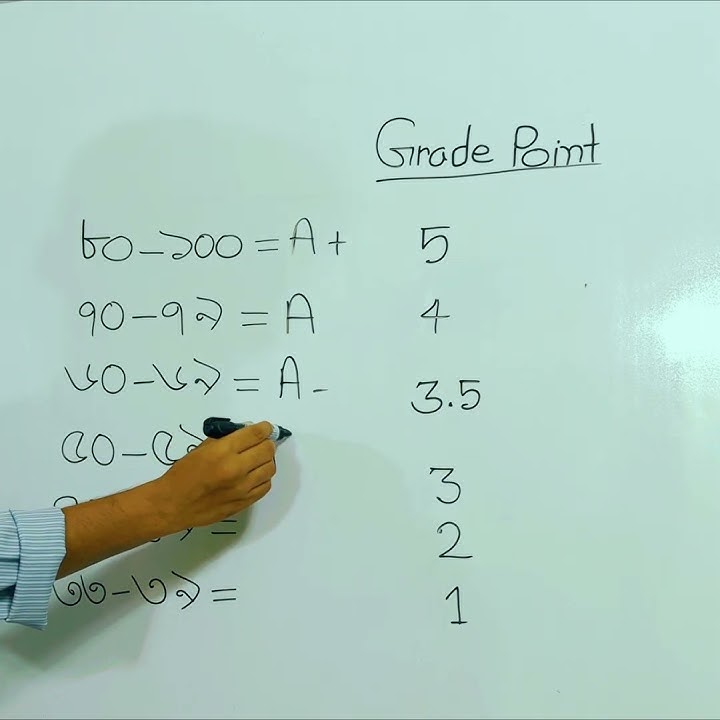 Grade Point
৮০-১০০ = A+ 5
৭০-৭৯ = A 4
৬০-৬৯ = A- 3.5
৫০-৫৯ 3
= 2
৩৩-৩৯ = 1